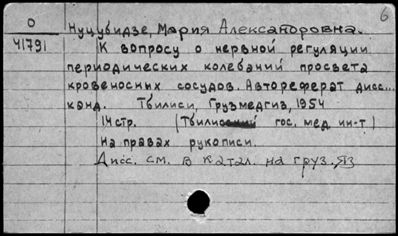 6
О Нуцубидзе, Мария Александровна.
41791 К вопросу о нервной регуляции
периодических колебаний просвета
кровеносных сосудов. Автореферат дисс...
канд. Тбилиси, Грузмедгиз, 1954
14 стр. (Тбилис гос. мед. ин-т)
На правах рукописи.
Дисс. см. в катал. на груз. яз